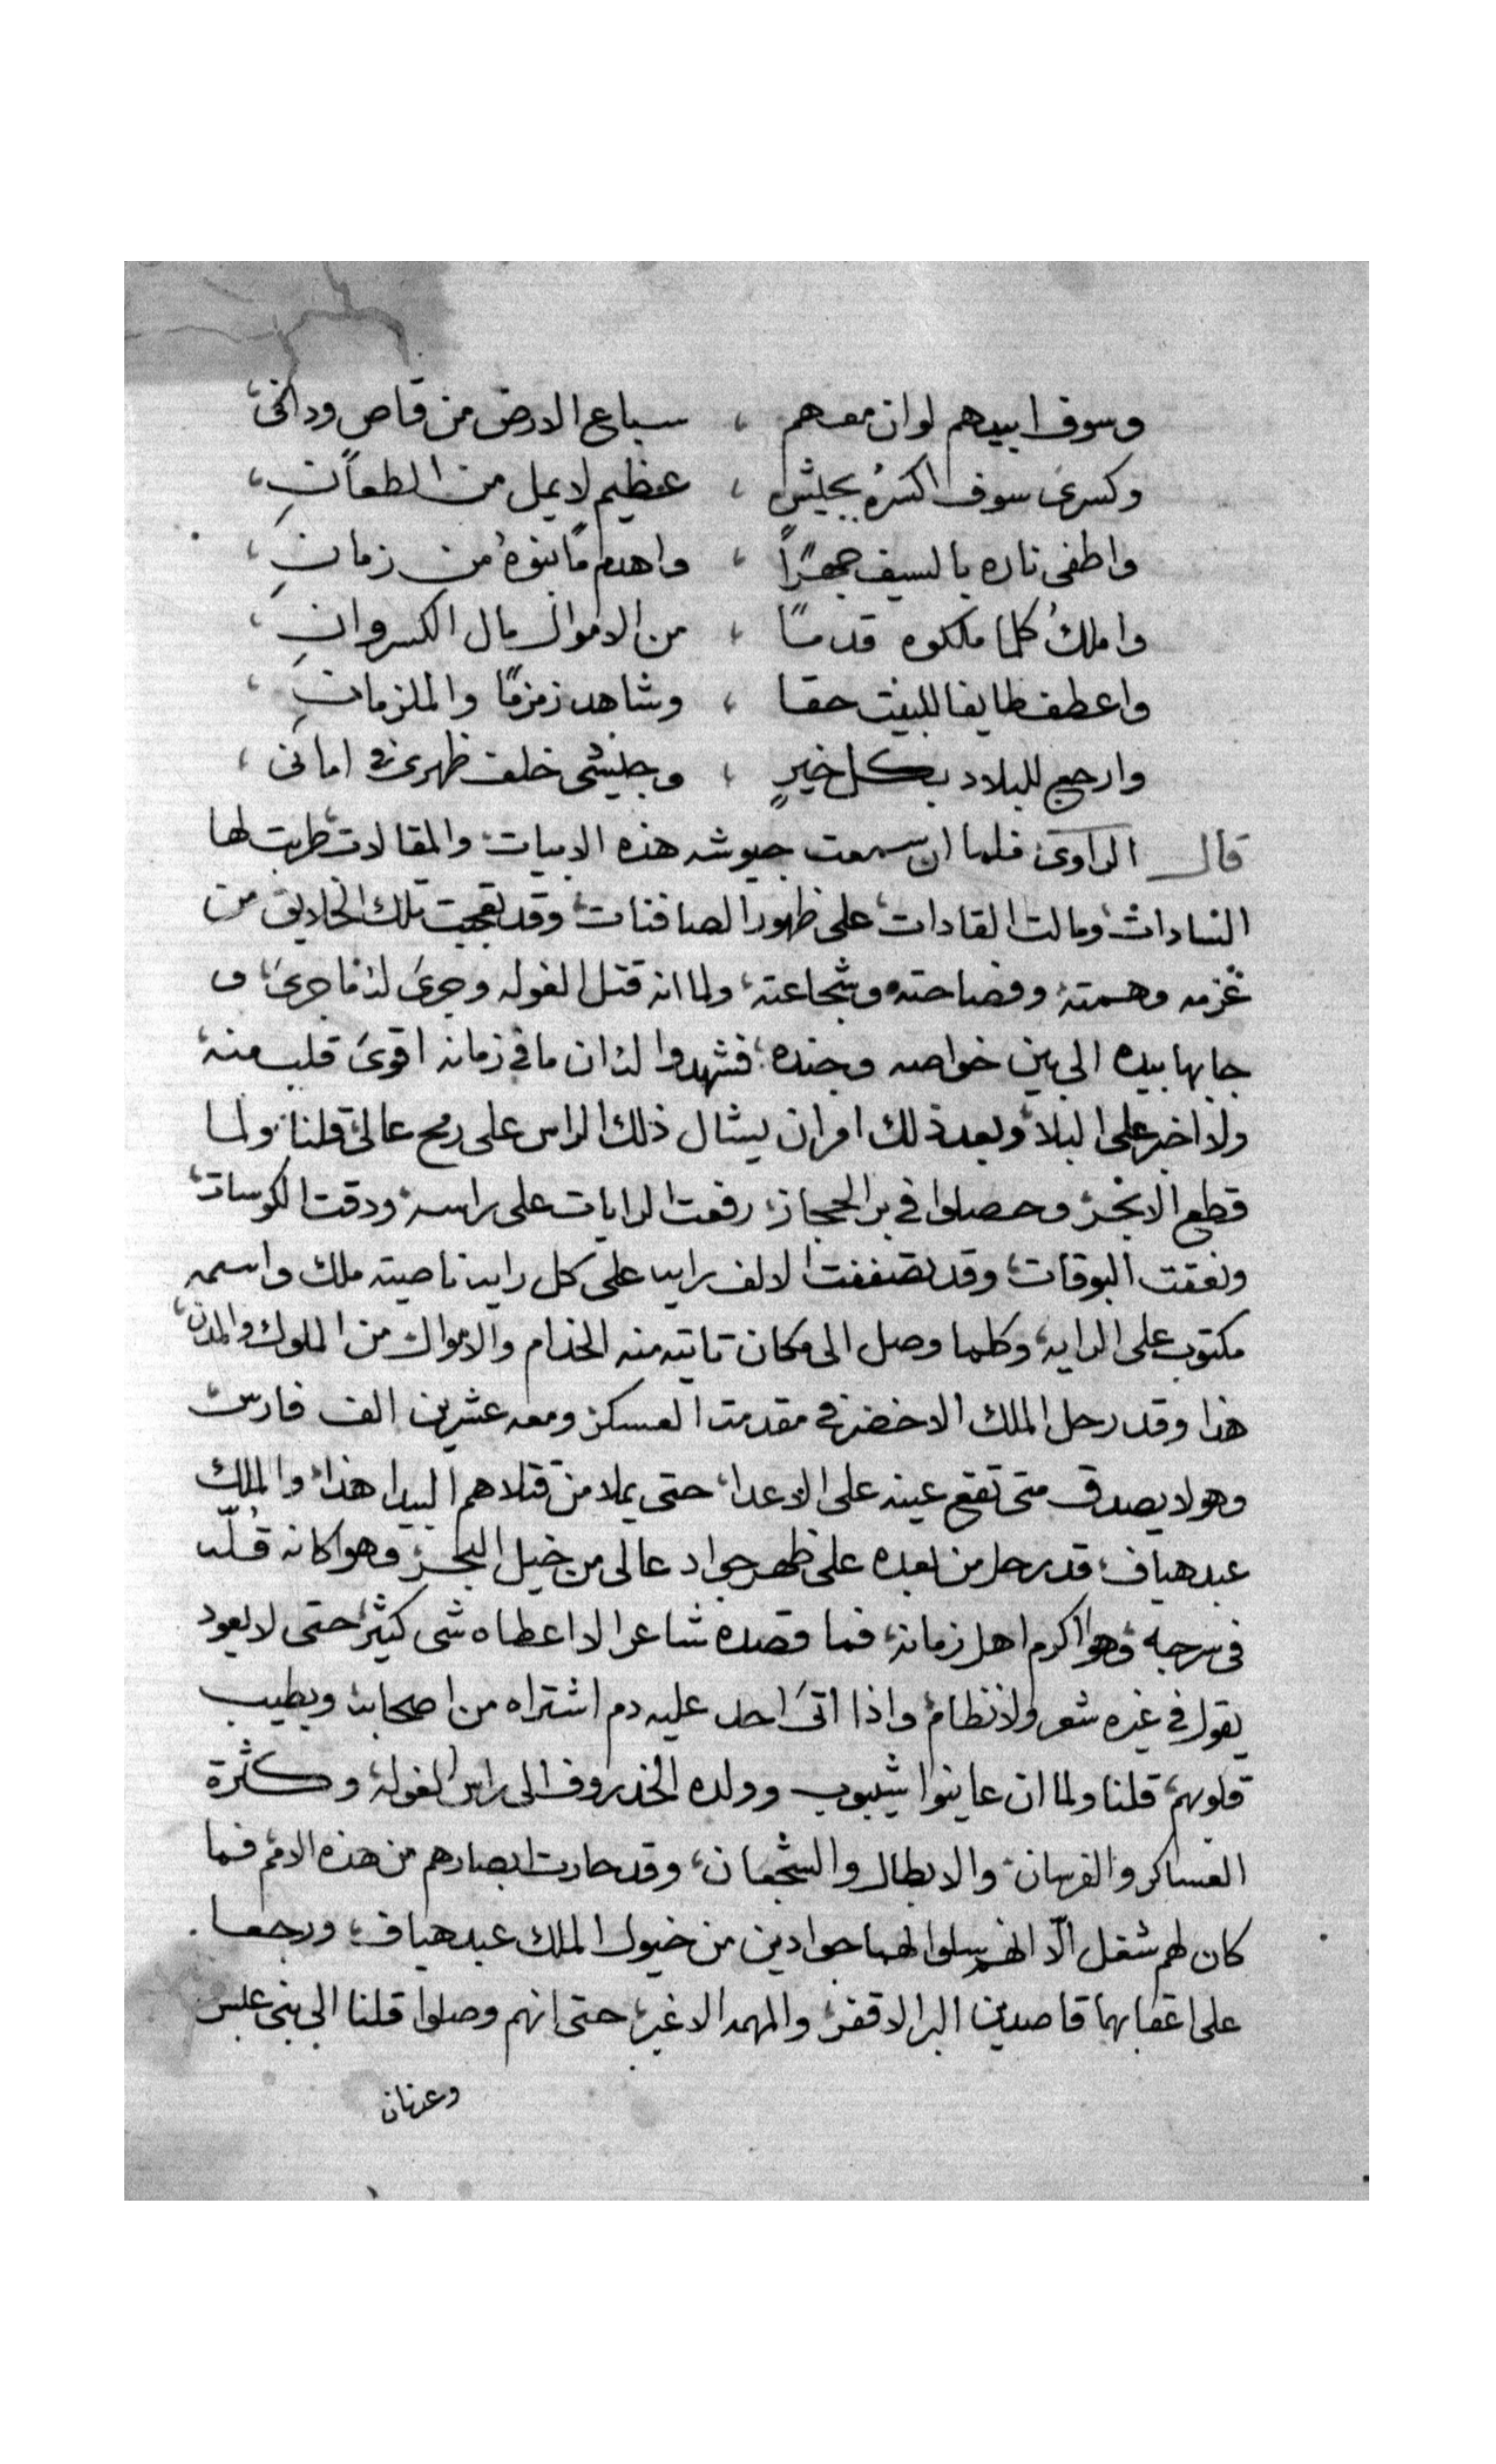 وسوف ابيدهم لو ان معهم ، سباع الارض من قاص وداني،
وكسرى سوف اكسره بجيش ، عظيم لا يمل من الطعان،
واطفى ناره بالسيف جهرًا ، واهدم ما بنوه من زمان،
واملك كلما ملكوه قدمًا ، من الاموال مال الكسروان،
واعطف طايفا للبيت حقا ، وشاهد زمزمًا والملزمان،
وارجع للبلاد بكل خيرٍ ، وجيشى خلف ظهرى فى امانى ،
قال الراوى فلما ان سمعت جيوشه هذه الابيات، والمقالات، طربت لها
السادات، ومالت القادات، على ظهور الصافنات، وقد تعجبت تلك الخلايق من
عزمه وهمته، وفصاحته وشجاعته، ولما انه قتل الغوله وجرى له ما جرى، و
جابها بيده الى بين خواصه وجنده، فشهدوا له ان ما فى زمانه اقوى قلب منه،
ولا اخبر على البلا، وبعد ذلك امر ان يشال ذلك الراس على رمح عالى، قلنا ولما
قطع الابحر، وحصلوا فى بر الحجاز، رفعت الرايات على راسه، ودقت الكوسات،
ونعقت البوقات، وقد تصففت الالف رايه على كل رايه ناصيته ملك واسمه
مكتوب على الرايه، وكلما وصل الى مكان تاتيه منه الخدام والاموال من الملوك والمدن،
هذا وقد رحل الملك الاخضر فى مقدمت العسكر، ومعه عشرين الف فارس،
وهو لا يصدق متى تقع عينه على الاعدا، حتى يملا من قتلاهم البيدا، هذا، والملك
عبد هياف، قد رحل من بعده على ظهر جواد عالى من خيل البحر، وهو كانه قُلّه
فى سرجه، وهو اكرم اهل زمانه، فما قصده شاعر الا اعطاه شى كثير، حتى لا يعود
يقول فى غيره شعر ولا نظام، واذا اتى احد عليه دم اشتراه من اصحابه ويطيب
قلوبهم، قلنا ولما ان عاينوا شيبوب وولده الخذروف الى راس الغوله، وكثرة
العساكر والفرسان، والابطال والشجعان، وقد حارت ابصارهم من هذه الامم فما
كان لهم شغل الّا انهم سلوا لهما جوادين من خيول الملك عبد هياف، ورجعا
على اعقابهما قاصدين البر الاقفر، والمهمه الاغبر، حتى انهم وصلوا قلنا الى بنى عبس
وعدنان